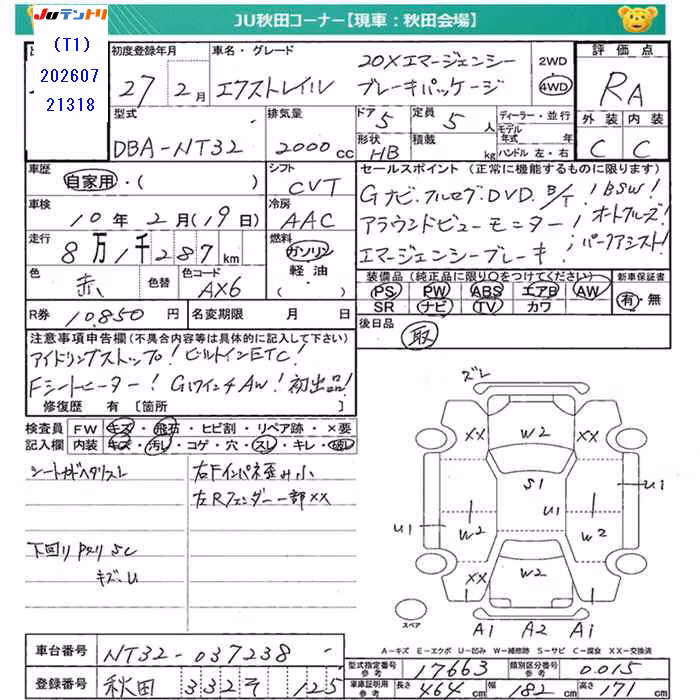 JUテントリ
JU秋田コーナー【現車：秋田会場】
(T1)
202607
21318
初度登録年月
27 2月
車名・グレード
エクストレイル
20Xエマージェンシー
ブレーキパッケージ
2WD
4WD
評価点
RA
外装 内装
C C
型式
DBA-NT32
排気量
2000cc
ドア 5
定員 5人
形状 HB
積載 kg
ディーラー・並行
モデル年式 年
ハンドル 左・右
車歴
自家用・( )
シフト
CVT
セールスポイント（正常に機能するものに限ります）
Gナビ.フルセグ.DVD.B/T! BSW!
アラウンドビューモニター! オートクルーズ!
エマージェンシーブレーキ! パークアシスト!
車検
10年2月(19日)
冷房
AAC
走行
8万1千287km
燃料
ガソリン
軽油・
( )
色
赤
色替
色コード
AX6
装備品（純正品に限り○をつけてください）
PS PW ABS エアB AW
SR ナビ TV カワ
新車保証書
有・無
R券 10,850円
名変期限 月 日
後日品
取
注意事項申告欄（不具合内容等は具体的に記入して下さい）
アイドリングストップ! ビルトインETC!
Fシートヒーター! G17インチAW! 初出品!
修復歴 有 〔箇所
検査員
記入欄
FW キズ・飛石・ヒビ割・リペア跡・×要
内装 キズ・汚レ・コゲ・穴・スレ・キレ・破レ
右Fインパネ歪み小
左Rフェンダー一部XX
キズ.U
ズレ
XX W2 XX
S1
U1
U1
U1
W2
W2
XX
W2
A1
A2
A1
スペア
A-キズ E-エクボ U-凹み W-補修跡 S-サビ C-腐食 XX-交換済
車台番号 NT32-037238
登録番号 秋田 332 そ 125
型式指定番号 参考 17663
類別区分番号 参考 0015
車庫証明用 参考 長さ 464cm 幅 182cm 高さ 171cm